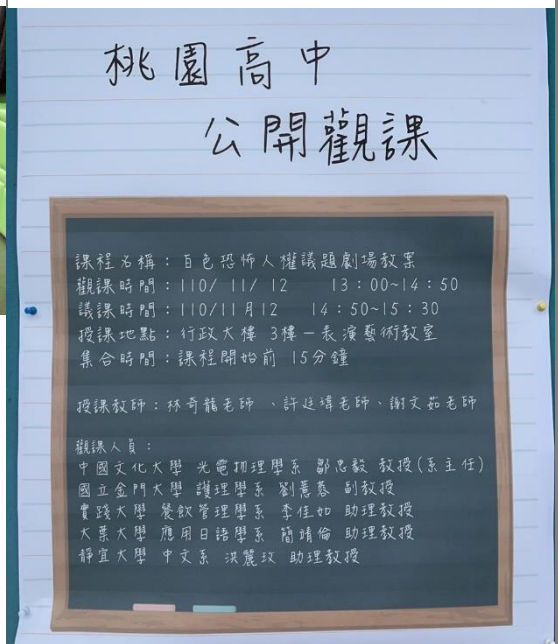 桃園高中
公開觀課
課程名稱：白色恐怖人權議題劇場教案
觀課時間：110/ 11/ 12 13：00~14：50
議課時間：110/11月12 14：50~15：30
授課地點：行政大樓 3樓－表演藝術教室
集合時間：課程開始前 15分鐘
授課教師：林奇龍老師 、許廷瑋老師、謝文茹老師
觀課人員：
中國文化大學 光電物理學系 鄒忠毅 教授(系主任)
國立金門大學 護理學系 劉蕙 副教授
實踐大學 餐飲管理學系 李佳如 助理教授
大葉大學 應用日語學系 簡靖倫 助理教授
靜宜大學 中文系 洪麗玫 助理教授